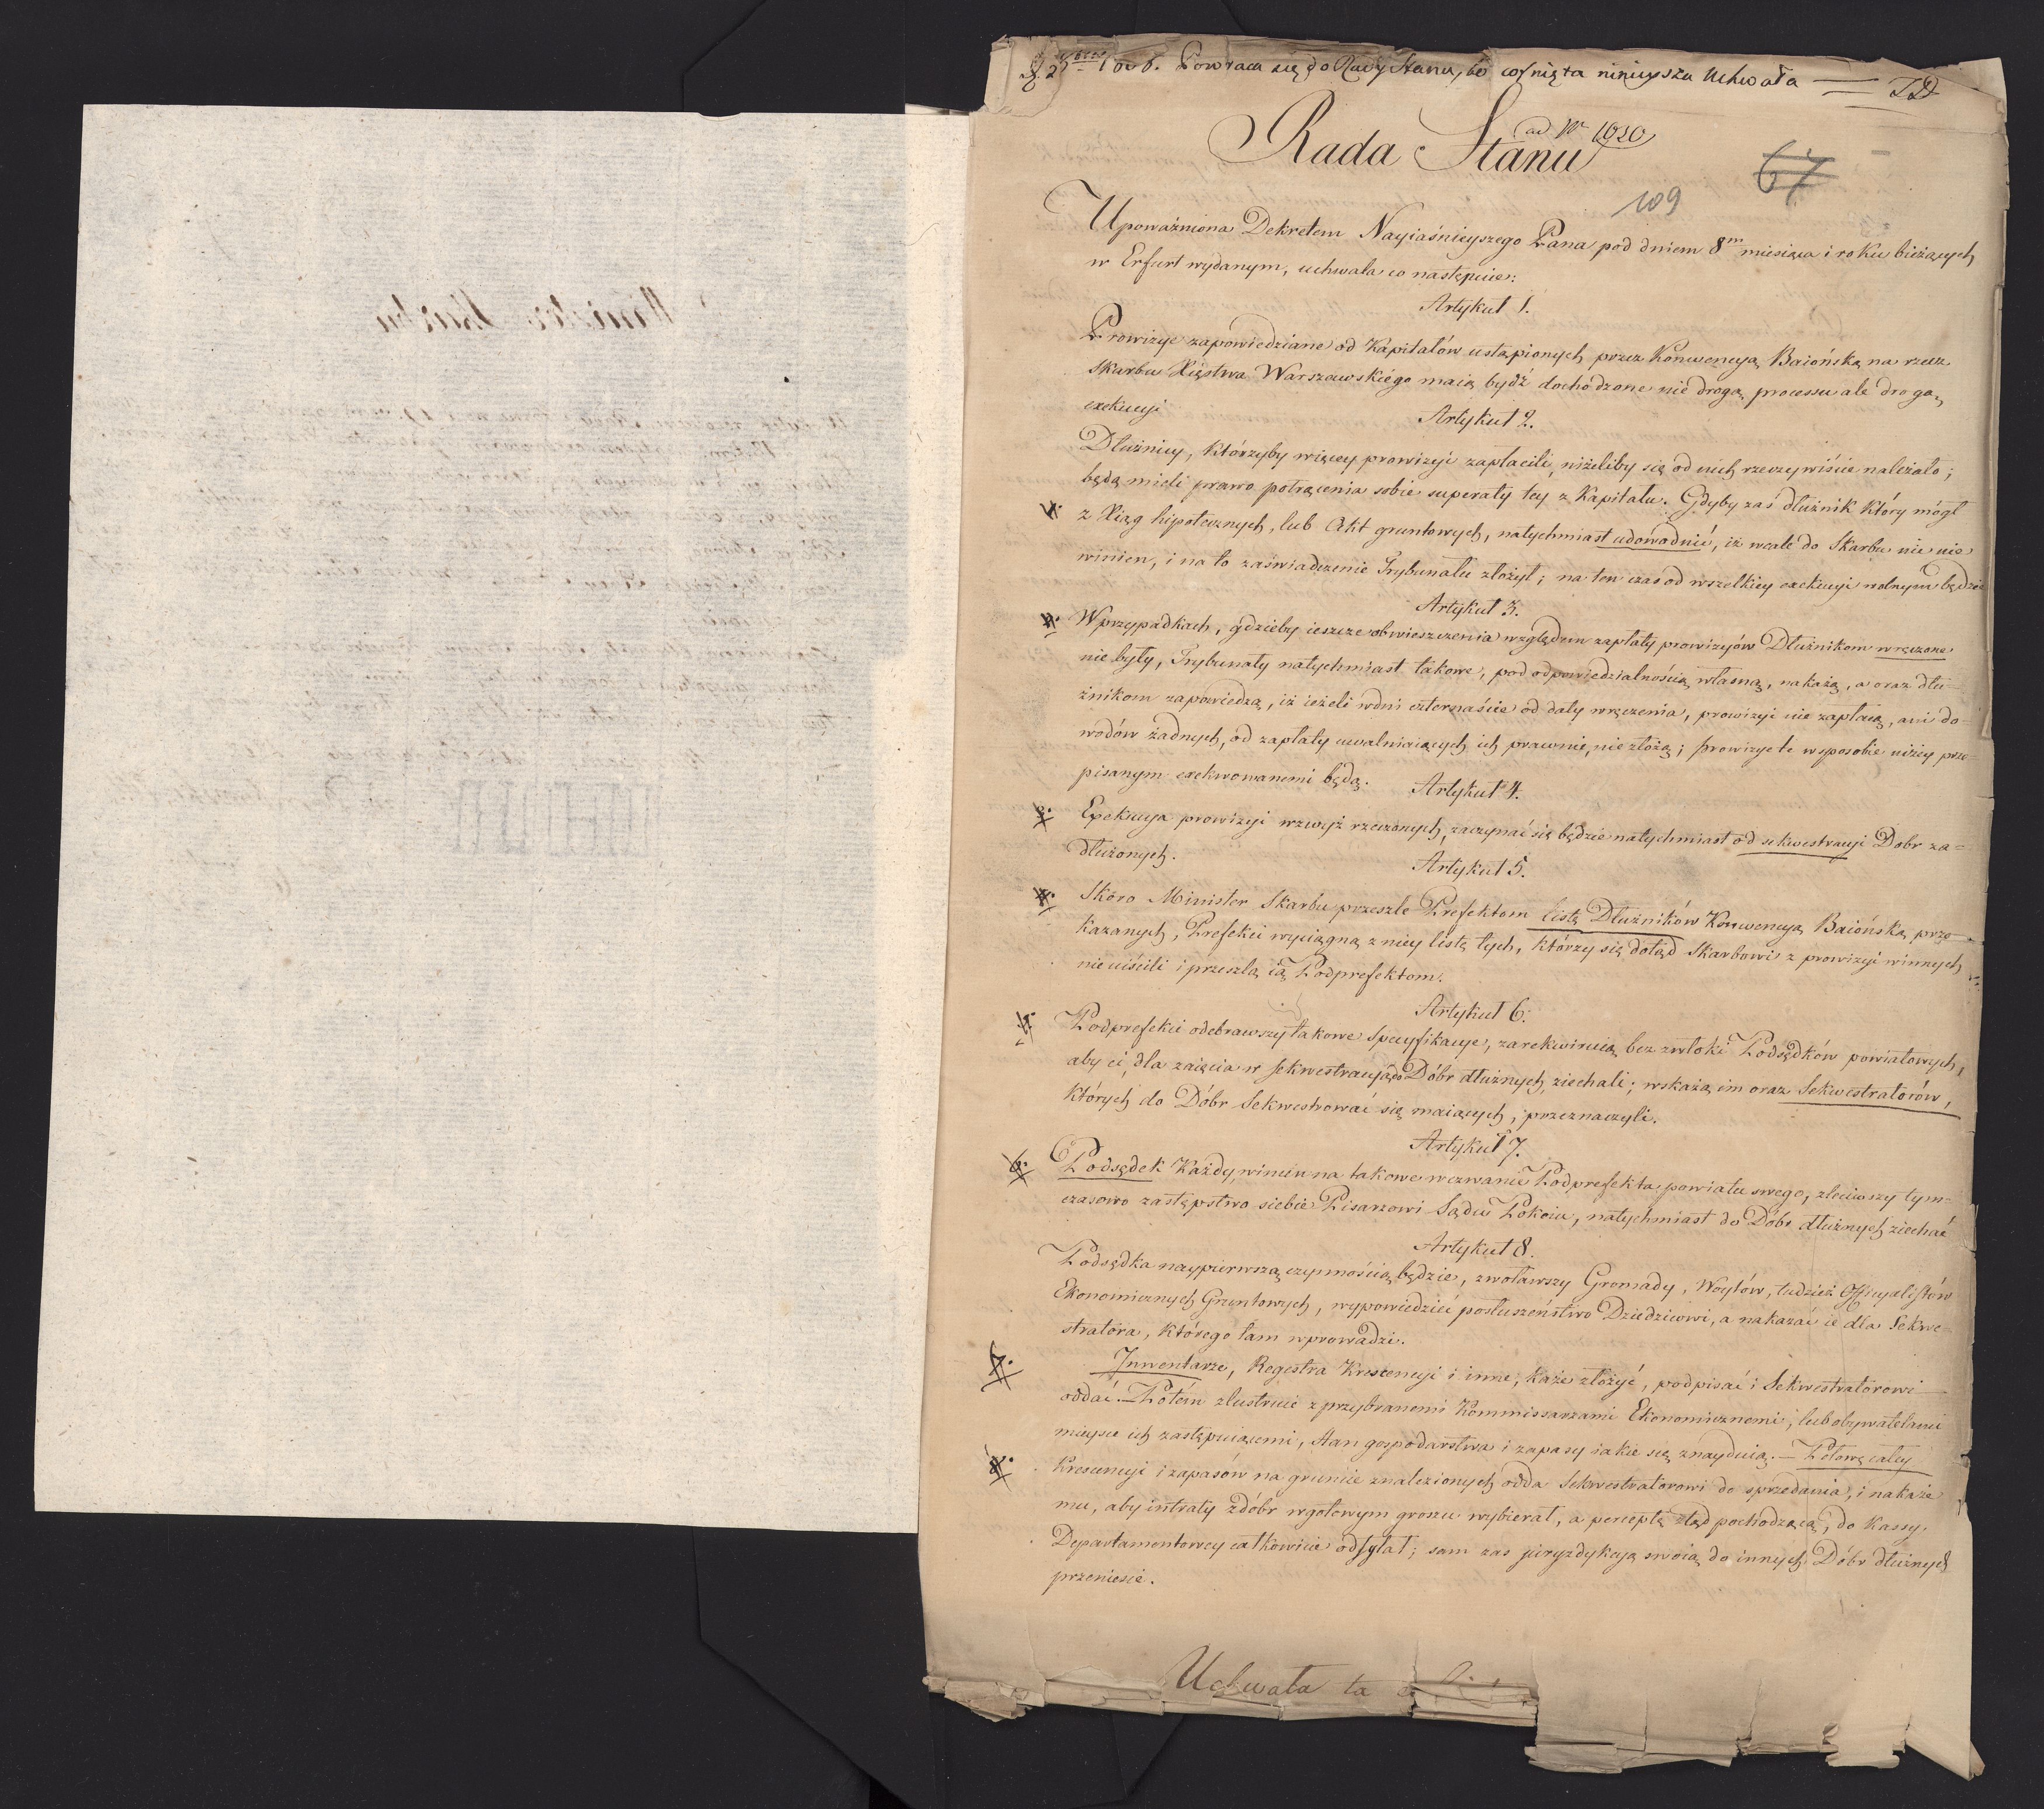 Powraca się do Rady Stanu, bo cofnięta ninieysza Uchwała
ad Nr 1020
Rada Stanu
67
109
Upoważniona Dekretem Nayiaśnieyszego Pana pod dniem 8m miesiąca i roku bieżących
w Erfurt wydanym, uchwala co następuie:
Artykuł 1.
Prowizye zapowiedziane od Kapitałów ustąpionych przez Konwencyą Baiońską na rzecz
Skarbu Xięstwa Warszawskiégo maią bydź dochodzone nie drogą processu ale drogą
exekucyi
Artykuł 2.
Dłużnicy, którzyby więcey prowizyi zapłacili, niżeliby się od nich rzeczywiście należało;
będą mieli prawo potrącenia sobie superaty tey z Kapitału. Gdyby zaś dłużnik który mógł
1. z Xiąg hipotecznych, lub Akt gruntowych, natychmiast udowodnić, iż wcale do Skarbu nic nie
winien, i na to zaświadczenie Trybunału złożył; na ten czas od wszelkiey exekucyi wolnym będzie
Artykuł 3.
2. W przypadkach, gdzieby ieszcze obwieszczenia względem zapłaty prowizyów Dłużnikom wręczone
nie były, Trybunały natychmiast takowe, pod odpowiedzialnością własną, nakażą, a oraz dłu-
żnikom zapowiedzą, iż ieżeli w dni czternaście od daty wręczenia, prowizyi nie zapłacą, ani do-
wodów żadnych, od zapłaty uwalniaiących ich prawnie, nie złożą; prowizye te w sposobie niżey prze-
pisanym exekwowanemi będą.
Artykuł 4.
3. Exekucya prowizyi wzwyż rzeczonych, zaczynać się będzie natychmiast od sekwestracyi Dobr za-
dłużonych.
Artykuł 5.
4. Skoro Minister Skarbu prześle Prefektom listę Dłużników Konwencyą Baiońską prze-
kazanych, Prefekci wyciągną z niey listę tych, którzy się dotąd Skarbowi z prowizyi winnych
nie uiścili i prześlą ią Podprefektom.
Artykuł 6.
5. Podprefekci odebrawszy takowe Specyfikacye, zarekwiruią bez zwłoki Podsędków powiatowych,
aby ci, dla zaięcia w sekwestracyą do Dóbr dłużnych ziechali; wskażą im oraz Sekwestratorów,
których do Dóbr Sekwestrować się maiących, przeznaczyli.
Artykuł 7.
6. Podsędek Każdy, winien na takowe wezwanie Podprefekta powiatu swego, zleciwszy tym-
czasowo zastępstwo siebie Pisarzowi Sądu Pokoiu, natychmiast do Dóbr dłużnych ziechać
Artykuł 8.
Podsędka naypierwszą czynnością będzie, zwoławszy Gromady, Woytów, tudzież Officyalistów
Ekonomicznych Gruntowych, wypowiedzieć posłuszeństwo Dziedzicowi, a nakazać ie dla Sekwe-
stratora, którego tam wprowadzi.
7. Inwentarze, Regestra Krescencyi i inne, każe złożyć, podpisać i Sekwestratorowi
oddać. — Potém zlustruie z przybranemi Kommissarzami Ekonomicznemi, lub obywatelami
mieysce ich zastępuiącemi, stan gospodarstwa i zapasy iakie się znayduią. — Połowę całey
8. Krescencyi i zapasów na gruncie znalezionych odda Sekwestratorowi do sprzedania, i nakaże
mu, aby intraty z dóbr w gotowym groszu wybierał, a perceptę ztąd pochodzącą, do Kassy
Departamentowey całkowicie odsyłał; sam zas juryzdykcyą swoią do innych Dóbr dłużnych
przeniesie.
Uchwała ta